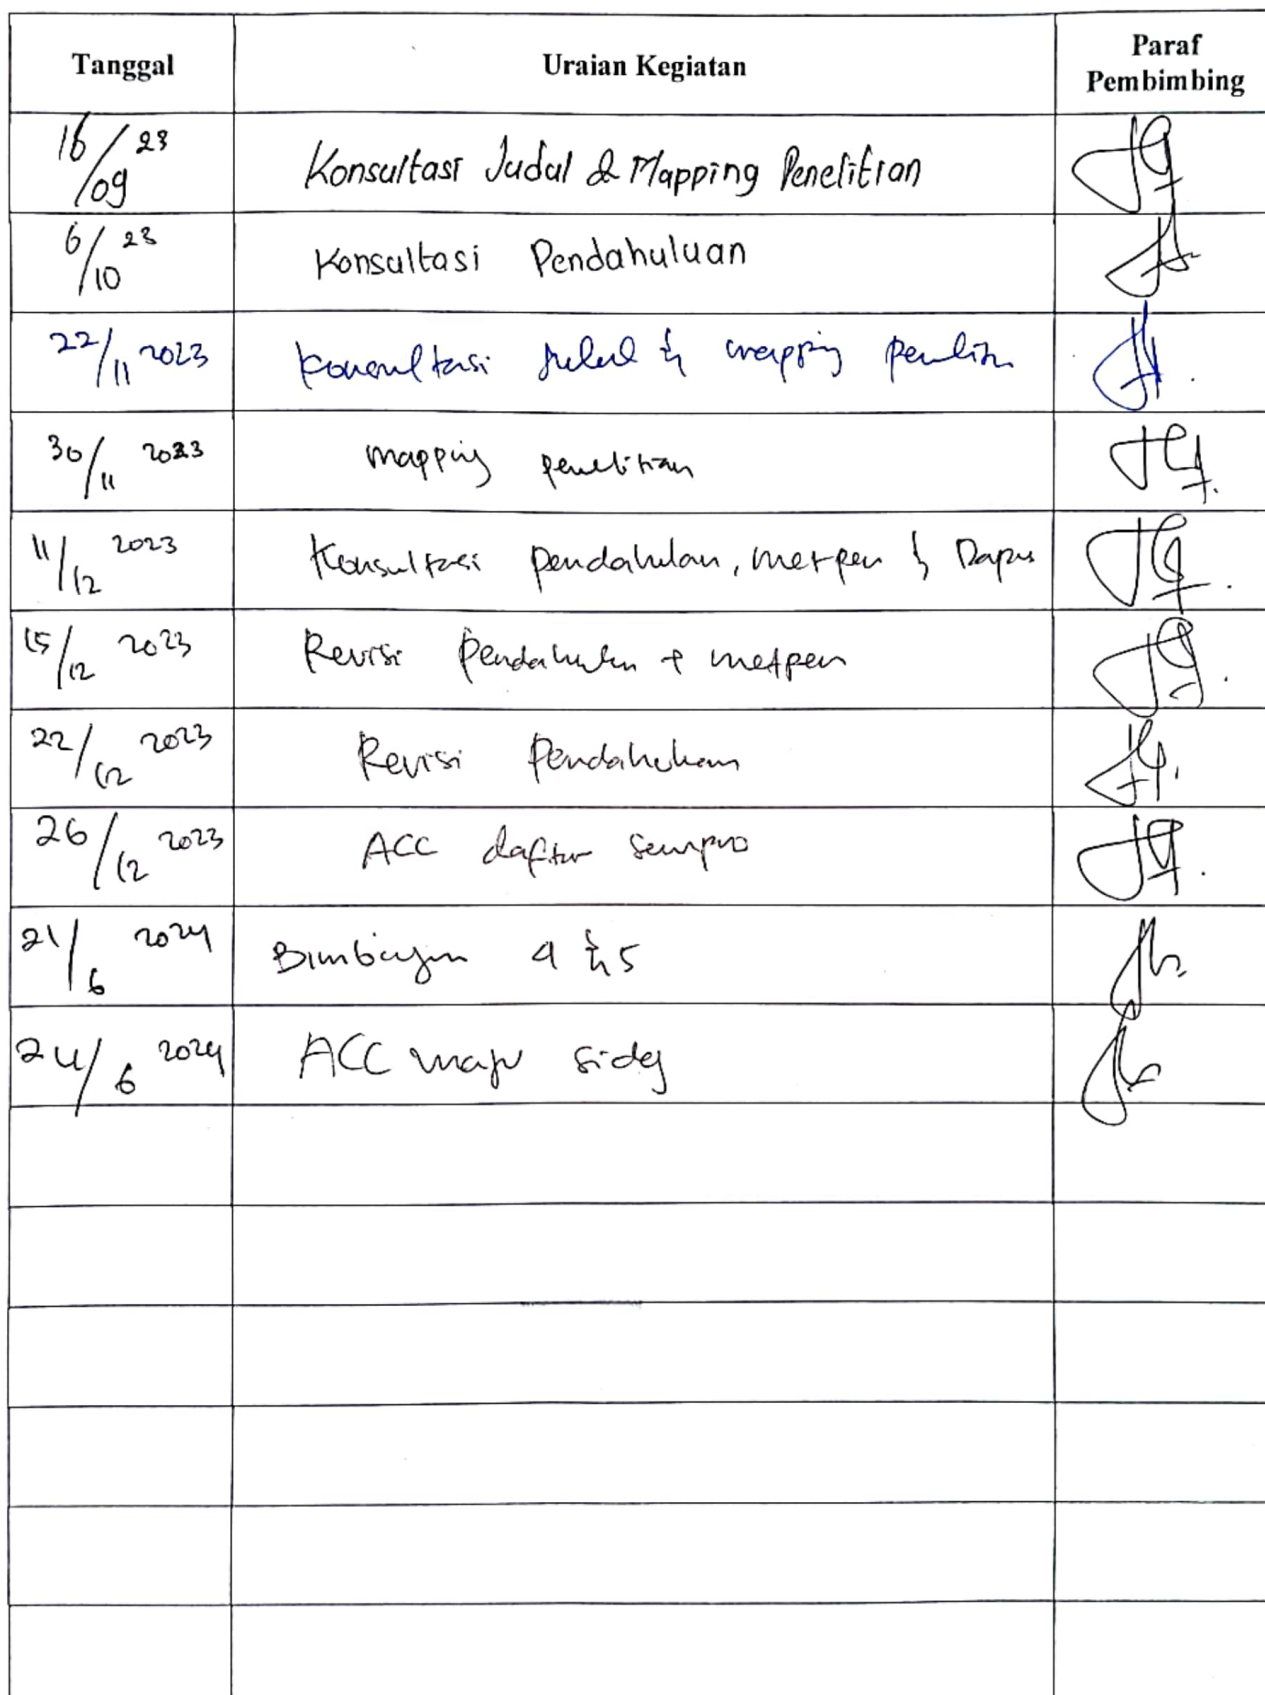 Tanggal Uraian Kegiatan Paraf Pembimbing
16/09 23 Konsultasi Judul & Mapping Penelitian
6/10 23 Konsultasi Pendahuluan
22/11 2023 Konsultasi & mapping
30/11 2023 mapping penelitian
11/12 2023 Konsultasi pendahulan, metpen & Dapus
15/12 2023 Revisi Pendahuluan + metpen
22/12 2023 Revisi Pendahuluan
26/12 2023 ACC daftar sempro
21/6 2024 Bimbingan 4 & 5
24/6 2024 ACC maju sidg